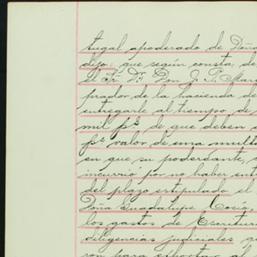 tugal apoderado de Doña
dijo: que según consta, de
el Sr. Dr. Don J. E. Mar
prador de la hacienda de
entregarle al tiempo de
mil ps. de que deben
ps. valor de una multa
en que su poderdante,
incurrio por no haber en
del plazo estipulado el
Doña Guadalupe Cosio,
los gastos de Escritur
diligencias judiciales
ron para